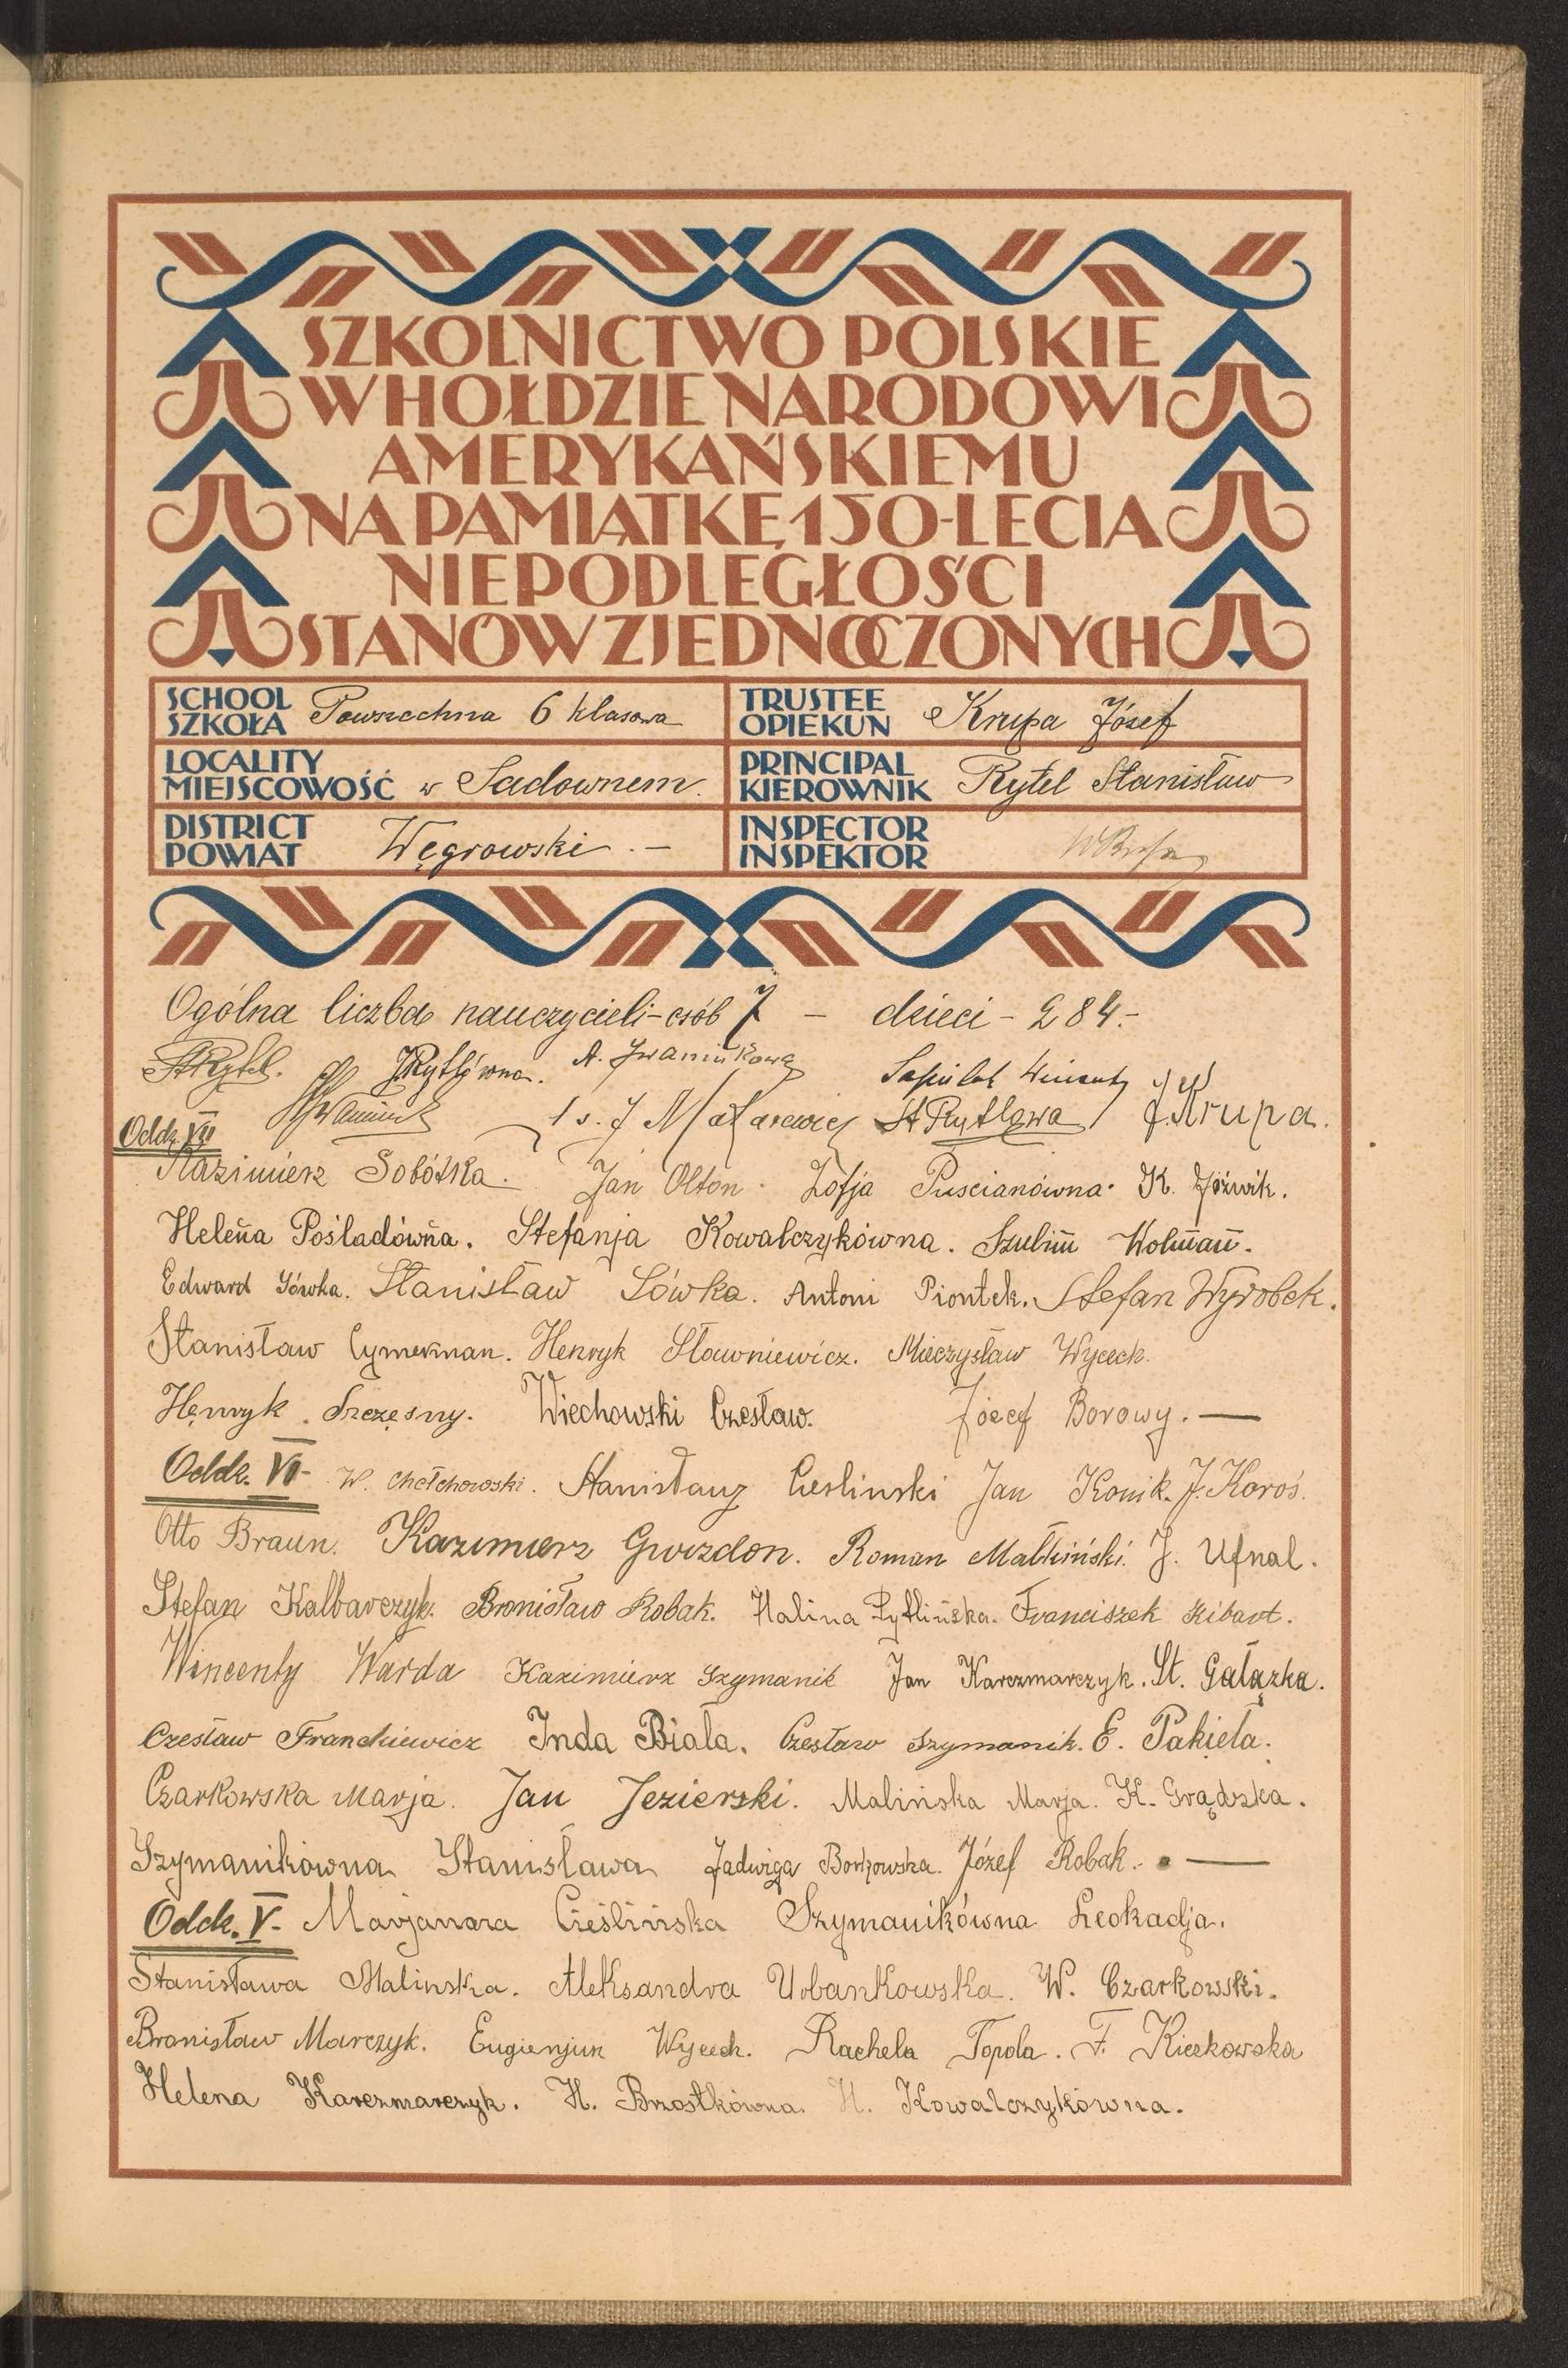 SZKOLNICTWO POLSKIE
W HOŁDZIE NARODOWI
AMERYKAŃSKIEMU
NA PAMIĄTKĘ 150-LECIA
NIEPODLEGŁOŚCI
STANÓW ZJEDNOCZONYCH
SCHOOL
SZKOŁA Powszechna 6 klasowa
TRUSTEE
OPIEKUN Krupa Józef
LOCALITY
MIEJSCOWOŚĆ w Sadownem.
PRINCIPAL
KIEROWNIK Rytel Stanisław
DISTRICT
POWIAT Węgrowski . —
INSPECTOR
INSPEKTOR
Ogólna liczba nauczycieli - osób 7 — dzieci - 284.-
StRytel. JRytlówna. A. Iwaniukowa
StRytlowa J. Krupa.
Oddz. VII
Kazimierz Sobótka. Jan Olton. Zofja Puscianówna. K. Jóżwik.
Helena Pośladówna. Stefanja Kowalczykówna. Szulim Wolman.
Edward Sówka. Stanisław Sówka. Antoni Piontek. Stefan Wyrobek.
Stanisław Cymerman. Henryk Sławniewicz. Mieczysław Wycech.
Henryk Szczęsny. Wiechowski Czesław. Józef Borowy. —
Oddz. VI- W. Chełchowski. Stanisław Cieslinski Jan Konik. J. Koroś.
Otto Braun. Kazimierz Gwizdon. Roman Małkiński. J. Ufnal.
Stefan Kalbarczyk. Bronisław Robak. Halina Rytlińska. Franciszek Kibart.
Wincenty Warda Kazimierz Szymanik Jan Karczmarczyk. St. Gałązka.
Czesław Franckiewicz Inda Biała. Czesław Szymanik. E. Pakieła.
Czarkowska Marja. Jan Jezierski. Malińska Marja. K. Grądzka.
Szymanikówna Stanisława Jadwiga Borkowska. Józef Robak. —
Oddz. V- Marjanna Cieślińska Szymanikówna Leokadja.
Stanisława Malinska. Aleksandra Urbankowska. W. Czarkowski.
Bronisław Marczyk. Eugienjusz Wycech. Rachela Topola. F. Kiczkowska
Helena Karczmarczyk. H. Brzostkówna. H. Kowalczykówna.